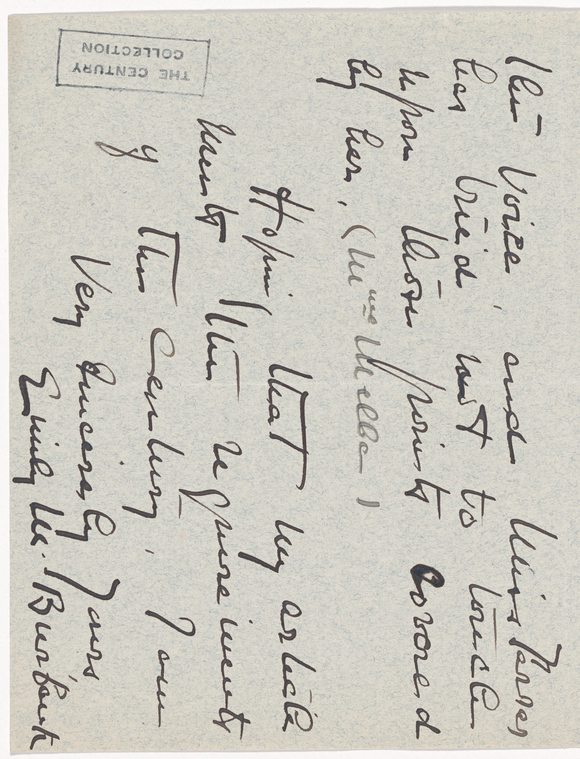 the Voice, and Miss
has tried not to touch
upon those points covered
by her. (Mme Melba)
Hoping that my article
meets the requirements
of The Century, I am
Very Sincerely Yours
Emily M. Burbank
THE CENTURY
COLLECTION